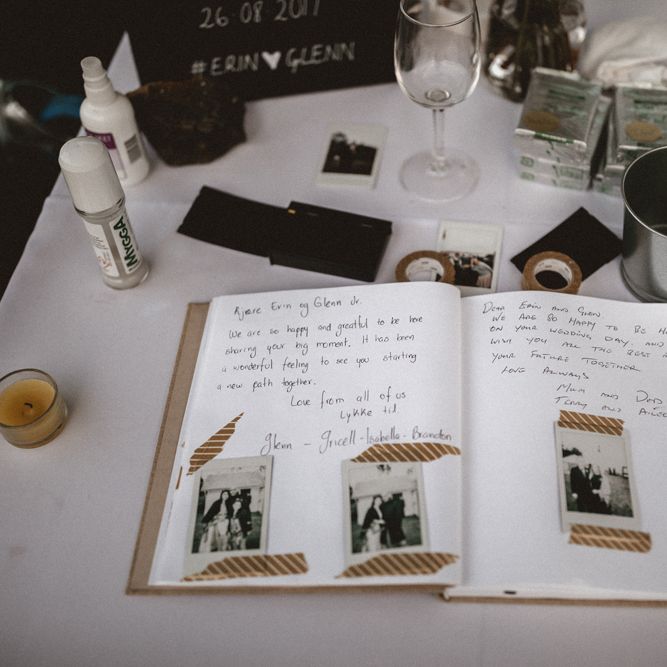 26.08 2017
#ERIN♥GLENN
MYGGA
Kjære Erin og Glenn Jr.
We are so happy and greatful to be here
sharing your big moment. It has been
a wonderful feeling to see you starting
a new path together.
Love from all of us
Lykke til
Glenn - Gricell - Isabella - Brandon
DEAR ERIN AND GLENN.
WE ARE SO HAPPY TO BE
ON YOUR WEDDING DAY. AND
WISH YOU ALL THE BEST
YOUR FUTURE TOGETHER
LOVE ALWAYS
MUM AND DAD
TERRY AND